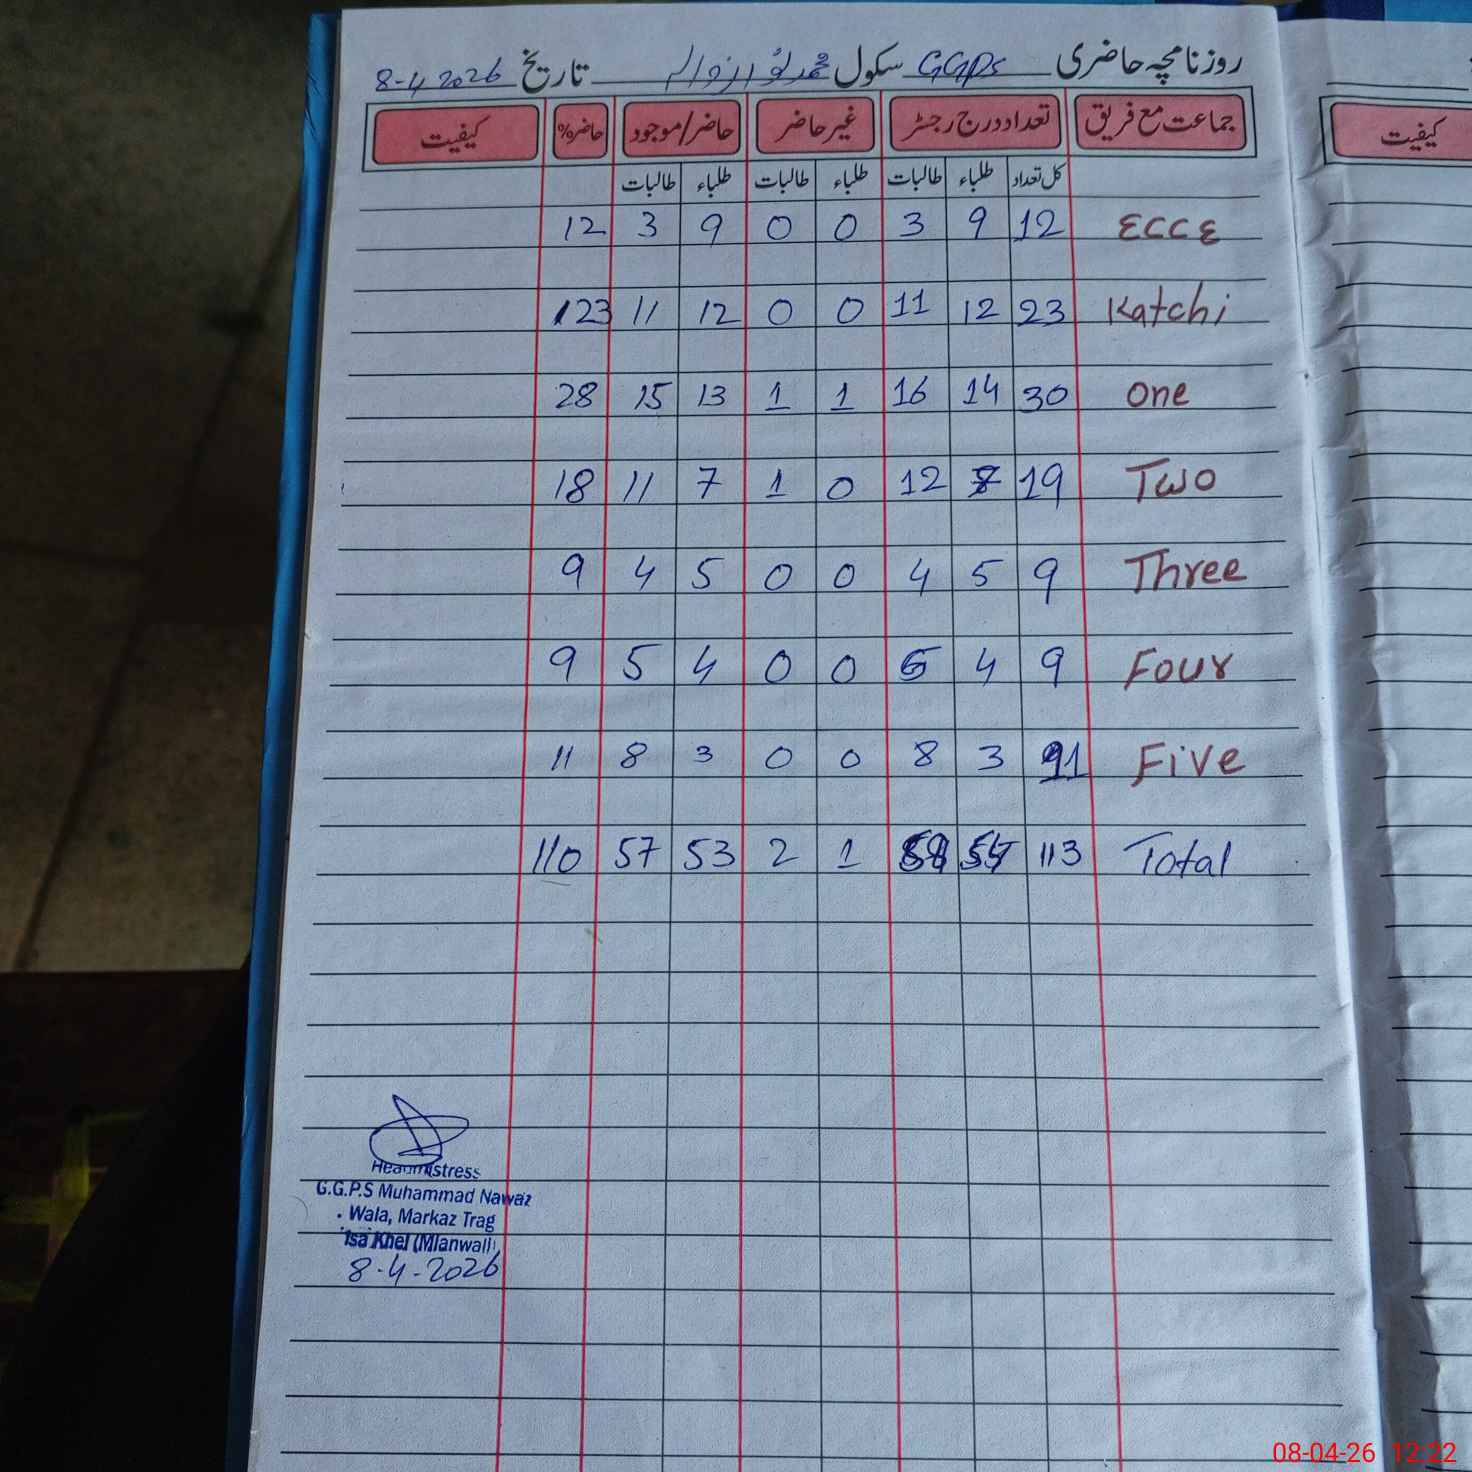 روزنامچہ حاضری GGPS سکول محمد نواز والہ تاریخ 8-4-2026
جماعت مع فریق تعداد درج رجسٹر غیر حاضر حاضر/موجود حاضر% کیفیت
کل تعداد طلباء طالبات طلباء طالبات طلباء طالبات
ECCE 12 9 3 0 0 9 3 12
Katchi 23 12 11 0 0 12 11 123
one 30 14 16 1 1 13 15 28
Two 19 7 12 0 1 7 11 18
Three 9 5 4 0 0 5 4 9
Four 9 4 5 0 0 4 5 9
Five 11 3 8 0 0 3 8 11
Total 113 54 59 1 2 53 57 110
Headmistress
G.G.P.S Muhammad Nawaz
Wala, Markaz Trag
Isa Khel (Mianwali)
8-4-2026
کیفیت
08-04-26 12:22